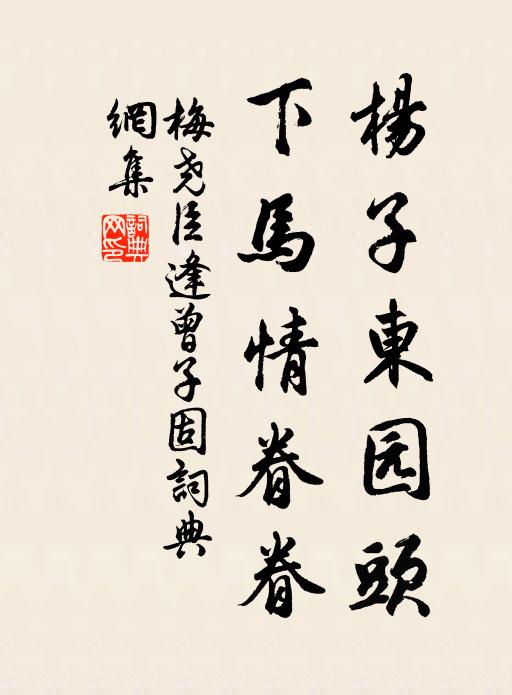 楊子東园頭
下馬情眷眷
梅尧臣逢曾子固詞典
網集
詞典網印